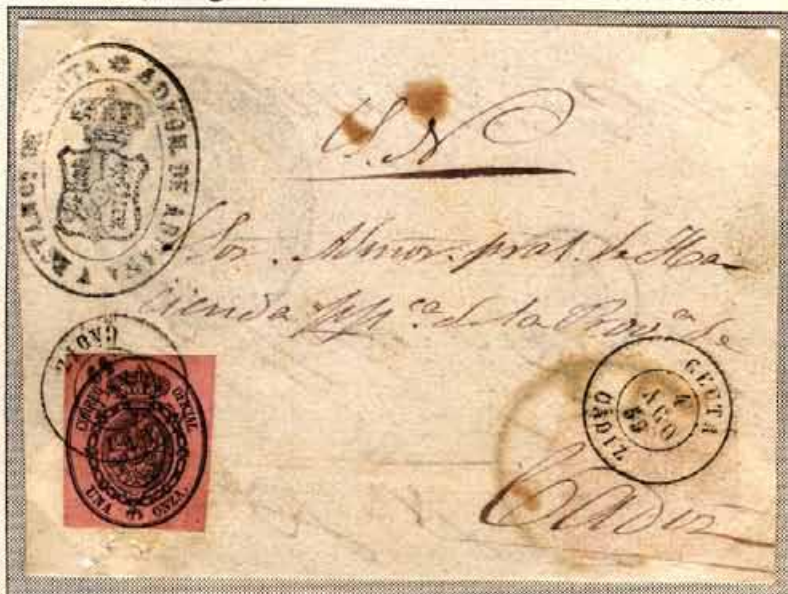 ADMON. DE ADUANA Y ESTANCOS DE CEUTA
S. N.
Sor. Admor. pral. de Ha-
cienda ppca. de la Prova. de
Cadiz
CADIZ
CORREO OFICIAL
UNA ONZA.
CEUTA
4
AGO
59
CADIZ